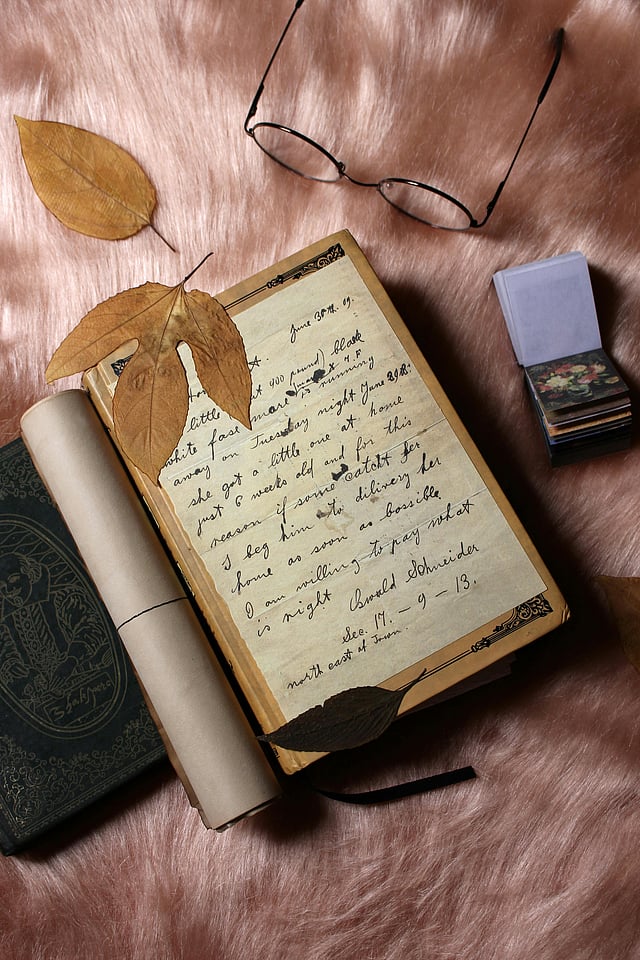 June 30th. 19.
900 pound) black
little
white fase mare is running
away on Tuesday night June
she got a little one at home
just 6 weeks old and for this
reason if some catcht her
I beg him to dilivery her
home as soon as bossible
I am willing to pay what
is right Oswald Schneider
Sec. 17. – 9 – 13.
north east of Town.